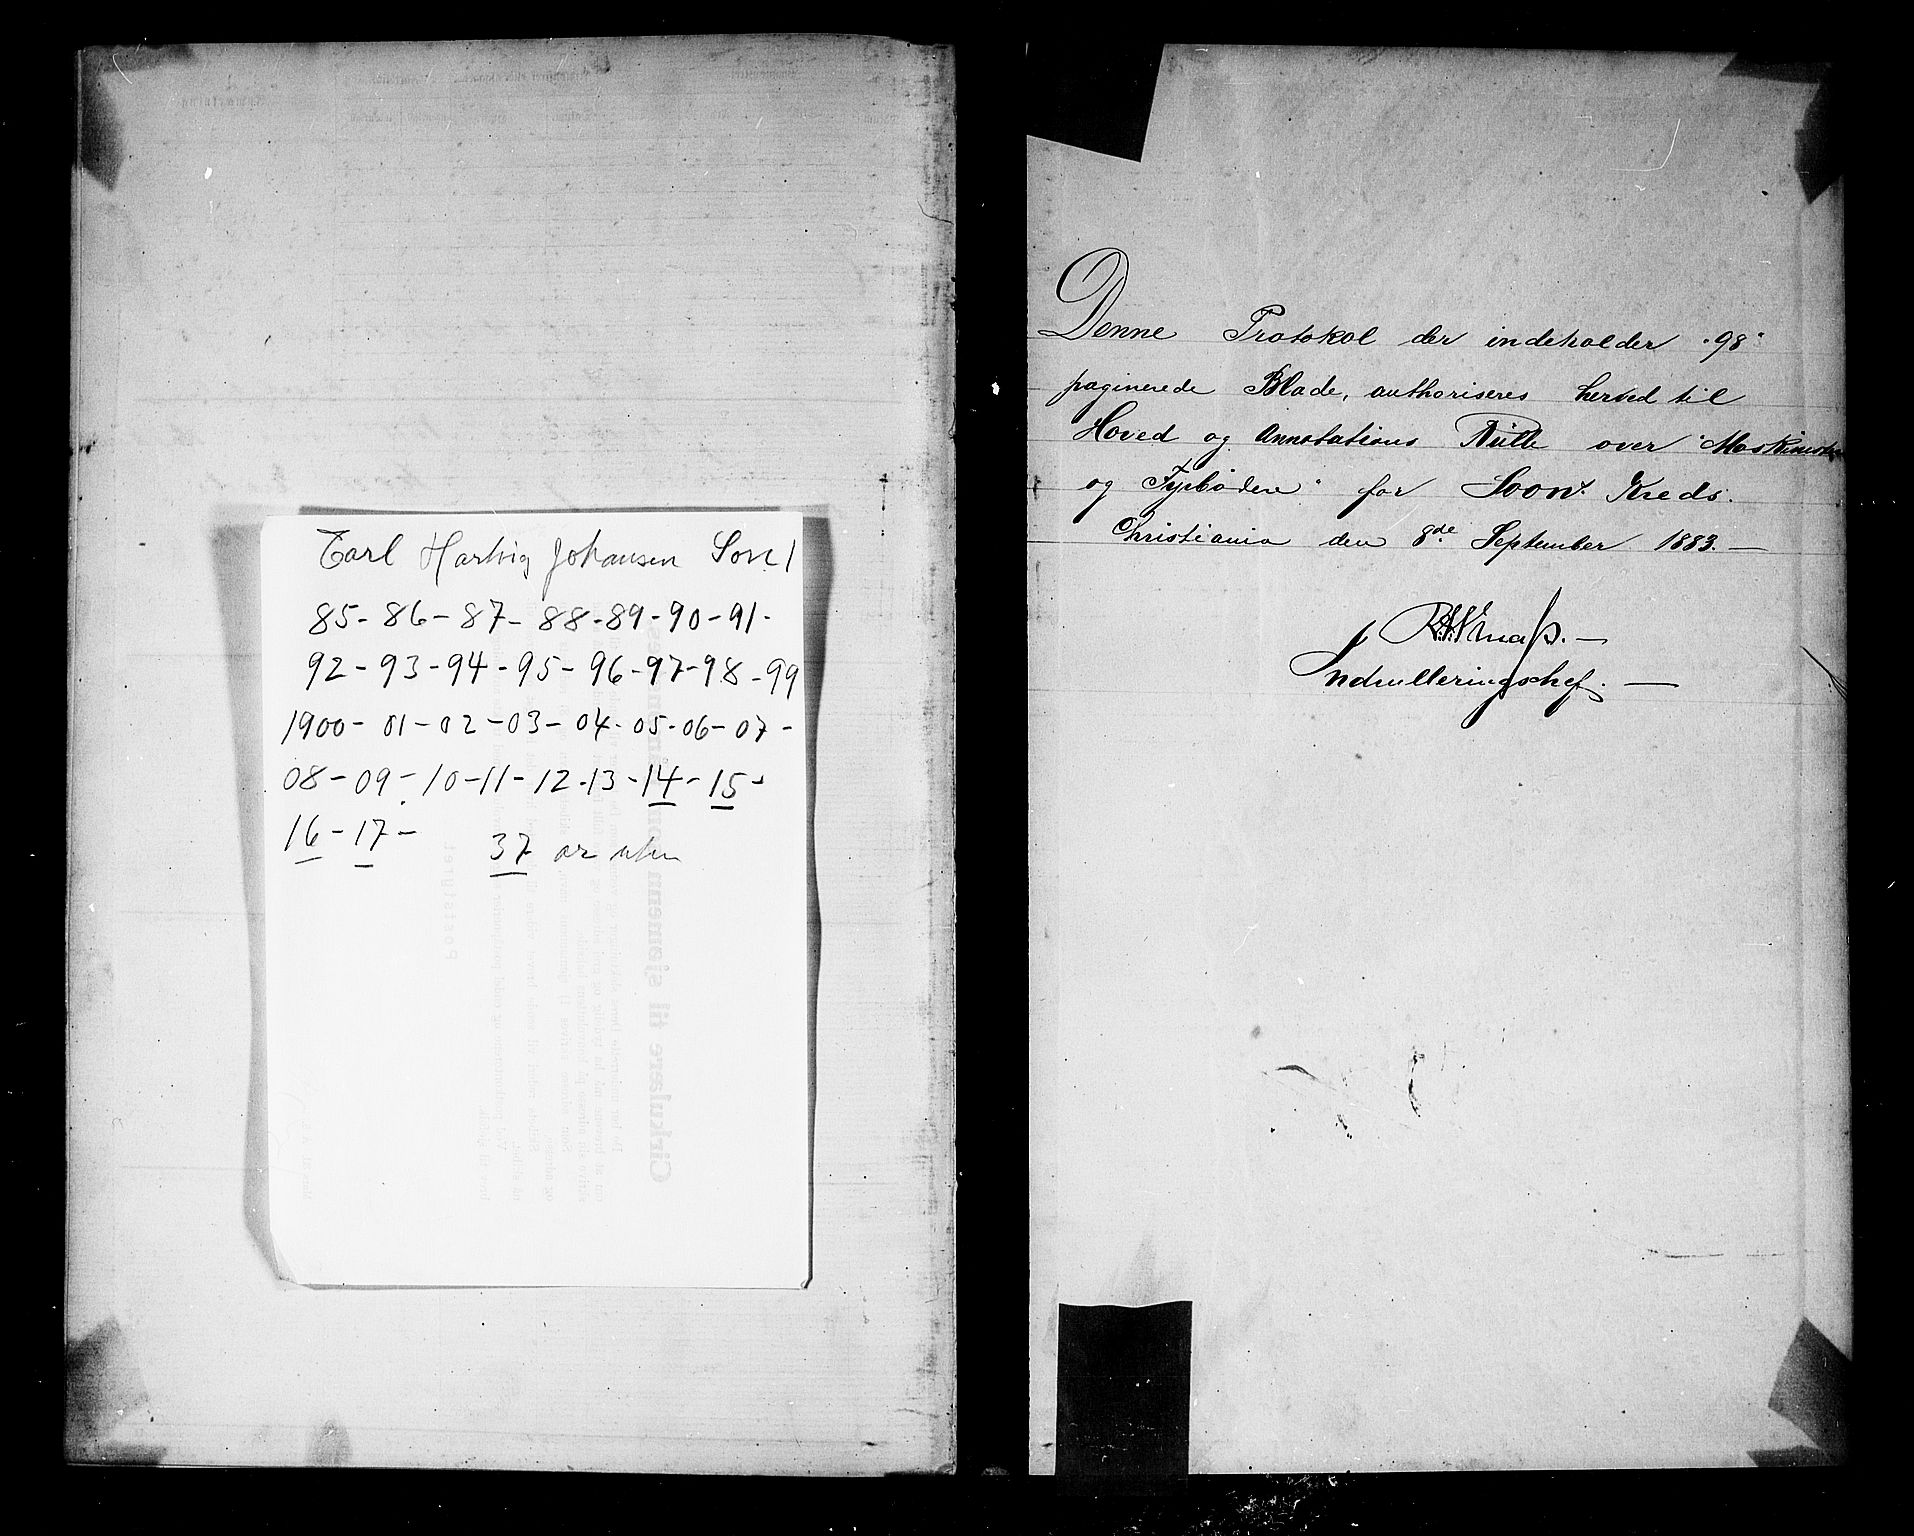 Carl Hartvig Johansen Son
85-86-87-88-89-90-91-
92-93-94-95-96-97-98-99
1900-01-02-03-04-05-06-07-
08-09-10-11-12-13-14-15-
16-17-
37 år uten
Cirkulære til sjømenn
Poststyret
Denne Protokol der indeholder "98"
paginerede Blade, authoriseres herved til
Hoved og Annotations Rulle over "Maskinister
og Fyrbødere" for Soon Kreds.
Christiania den 8de September 1883.—
Indrulleringschef.—